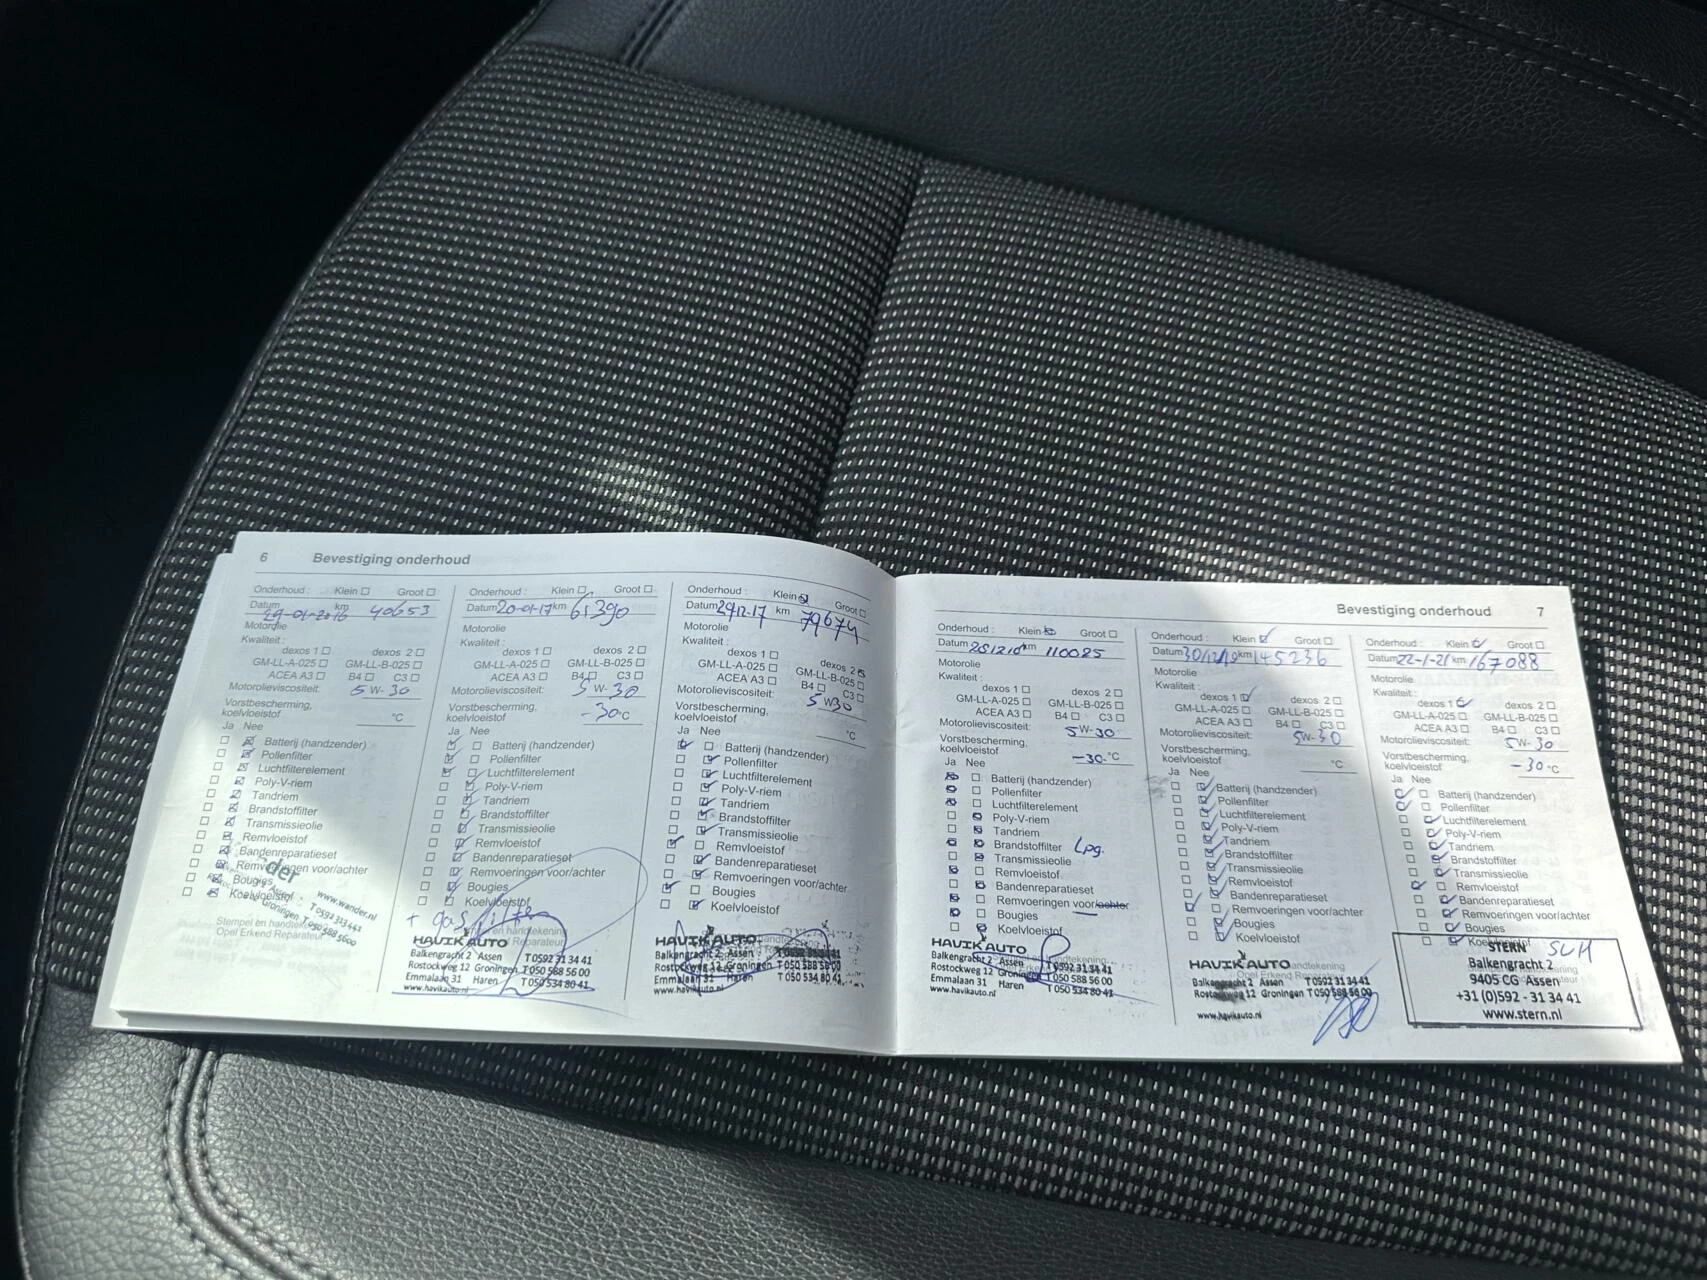 6 Bevestiging onderhoud
Onderhoud : Klein Groot
Datum 29-01-2016 km 40653
Motorolie
Kwaliteit :
dexos 1 dexos 2
GM-LL-A-025 GM-LL-B-025
ACEA A3 B4 C3
Motorolieviscositeit: 5W-30
Vorstbescherming,
koelvloeistof °C
Ja Nee
Batterij (handzender)
Pollenfilter
Luchtfilterelement
Poly-V-riem
Tandriem
Brandstoffilter
Transmissieolie
Remvloeistof
Bandenreparatieset
Remvoeringen voor/achter
Bougies
Koelvloeistof
www.wander.nl
Assen T 0592 313 441
Groningen T 050 588 5600
Stempel en handtekening
Opel Erkend Reparateur
Onderhoud : Klein Groot
Datum 20-01-17 km 61390
Motorolie
Kwaliteit :
dexos 1 dexos 2
GM-LL-A-025 GM-LL-B-025
ACEA A3 B4 C3
Motorolieviscositeit: 5W-30
Vorstbescherming,
koelvloeistof -30°C
Ja Nee
Batterij (handzender)
Pollenfilter
Luchtfilterelement
Poly-V-riem
Tandriem
Brandstoffilter
Transmissieolie
Remvloeistof
Bandenreparatieset
Remvoeringen voor/achter
Bougies
Koelvloeistof
+ gasfilter
HAVIK AUTO
Balkengracht 2 Assen T 0592 31 34 41
Rostockweg 12 Groningen T 050 588 56 00
Emmalaan 31 Haren T 050 534 80 41
www.havikauto.nl
Onderhoud : Klein Groot
Datum 29.12.17 km 79674
Motorolie
Kwaliteit :
dexos 1 dexos 2
GM-LL-A-025 GM-LL-B-025
ACEA A3 B4 C3
Motorolieviscositeit: 5W30
Vorstbescherming,
koelvloeistof °C
Ja Nee
Batterij (handzender)
Pollenfilter
Luchtfilterelement
Poly-V-riem
Tandriem
Brandstoffilter
Transmissieolie
Remvloeistof
Bandenreparatieset
Remvoeringen voor/achter
Bougies
Koelvloeistof
HAVIK AUTO
Balkengracht 2 Assen
Rostockweg 12 Groningen T 050 588 56 00
Emmalaan 31 Haren T 050 534 80 41
www.havikauto.nl
Bevestiging onderhoud 7
Onderhoud : Klein Groot
Datum km 110025
Motorolie
Kwaliteit :
dexos 1 dexos 2
GM-LL-A-025 GM-LL-B-025
ACEA A3 B4 C3
Motorolieviscositeit: 5W-30
Vorstbescherming,
koelvloeistof -30°C
Ja Nee
Batterij (handzender)
Pollenfilter
Luchtfilterelement
Poly-V-riem
Tandriem
Brandstoffilter Lpg.
Transmissieolie
Remvloeistof
Bandenreparatieset
Remvoeringen voor/achter
Bougies
Koelvloeistof
HAVIK AUTO
Balkengracht 2 Assen T 0592 31 34 41
Rostockweg 12 Groningen T 050 588 56 00
Emmalaan 31 Haren T 050 534 80 41
www.havikauto.nl
Onderhoud : Klein Groot
Datum 30/12/19 km 145236
Motorolie
Kwaliteit :
dexos 1 dexos 2
GM-LL-A-025 GM-LL-B-025
ACEA A3 B4 C3
Motorolieviscositeit: 5W-30
Vorstbescherming,
koelvloeistof °C
Ja Nee
Batterij (handzender)
Pollenfilter
Luchtfilterelement
Poly-V-riem
Tandriem
Brandstoffilter
Transmissieolie
Remvloeistof
Bandenreparatieset
Remvoeringen voor/achter
Bougies
Koelvloeistof
HAVIK AUTO
Balkengracht 2 Assen T 0592 31 34 41
Rostockweg 12 Groningen T 050 588 56 00
www.havikauto.nl
Onderhoud : Klein Groot
Datum 22-1-21 km 167088
Motorolie
Kwaliteit :
dexos 1 dexos 2
GM-LL-A-025 GM-LL-B-025
ACEA A3 B4 C3
Motorolieviscositeit: 5W-30
Vorstbescherming,
koelvloeistof -30°C
Ja Nee
Batterij (handzender)
Pollenfilter
Luchtfilterelement
Poly-V-riem
Tandriem
Brandstoffilter
Transmissieolie
Remvloeistof
Bandenreparatieset
Remvoeringen voor/achter
Bougies
Koelvloeistof
STERN
Balkengracht 2
9405 CG Assen
+31 (0)592 - 31 34 41
www.stern.nl